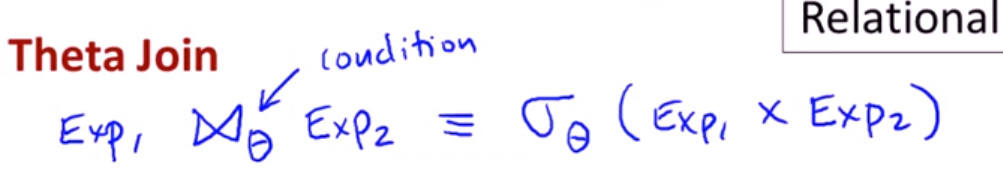 Relational
Theta Join
condition
Exp₁ ⋈θ Exp₂ ≡ σθ (Exp₁ × Exp₂)